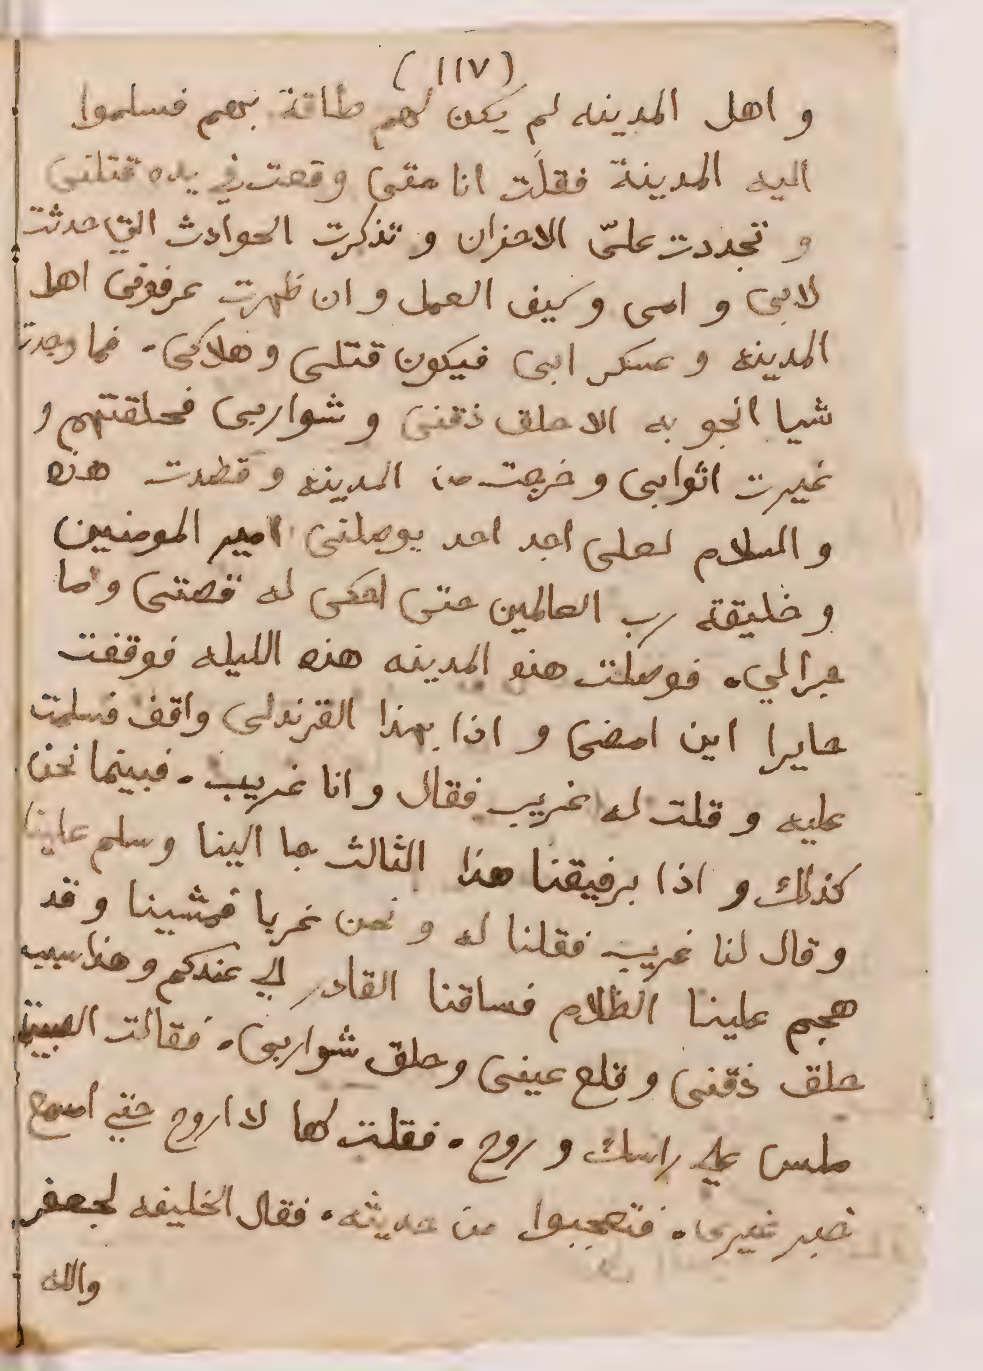 (١١٧)
و اهل المدينه لم يكن لهم طاقة بهم فسلموا
اليه المدينة فقلت انا متى وقعت في يده قتلني
و تجددت علىّ الاحزان و تذكرت الحوادث التي حدثت
لابى و امى و كيف العمل و ان ظهرت عرفونى اهل
المدينه و عسكر ابى فيكون قتلى و هلاكى. فما وجدت
شيا انجو به الا حلق ذقنى و شواربى فحلقتهم و
غيرت اثوابى و خرجت من المدينه و قصدت هذه
و السلام لعلى اجد احد يوصلنى امير المومنين
و خليقة رب العالمين حتى احكى له قصتى و ما
جرالي. فوصلت هذه المدينه هذه الليله فوقفت
حايرا اين امضى و اذا بهذا القرندلى واقف فسلمت
عليه و قلت له غريب فقال و انا غريب. فبينما نحن
كذلك و اذا برفيقنا هذا الثالث جا الينا و سلم علينا
و قال لنا غريب فقلنا له و نحن غربا فمشينا و قد
هجم علينا الظلام فساقنا القادر الي عندكم و هذا سبب
حلق ذقنى و قلع عينى و حلق شواربى. فقالت الصبية
ملس علي راسك و روح. فقلت لها لا اروح حتي اسمع
خبر غيرى. فتعجبوا من حديثه. فقال الخليفه لجعفر
والله